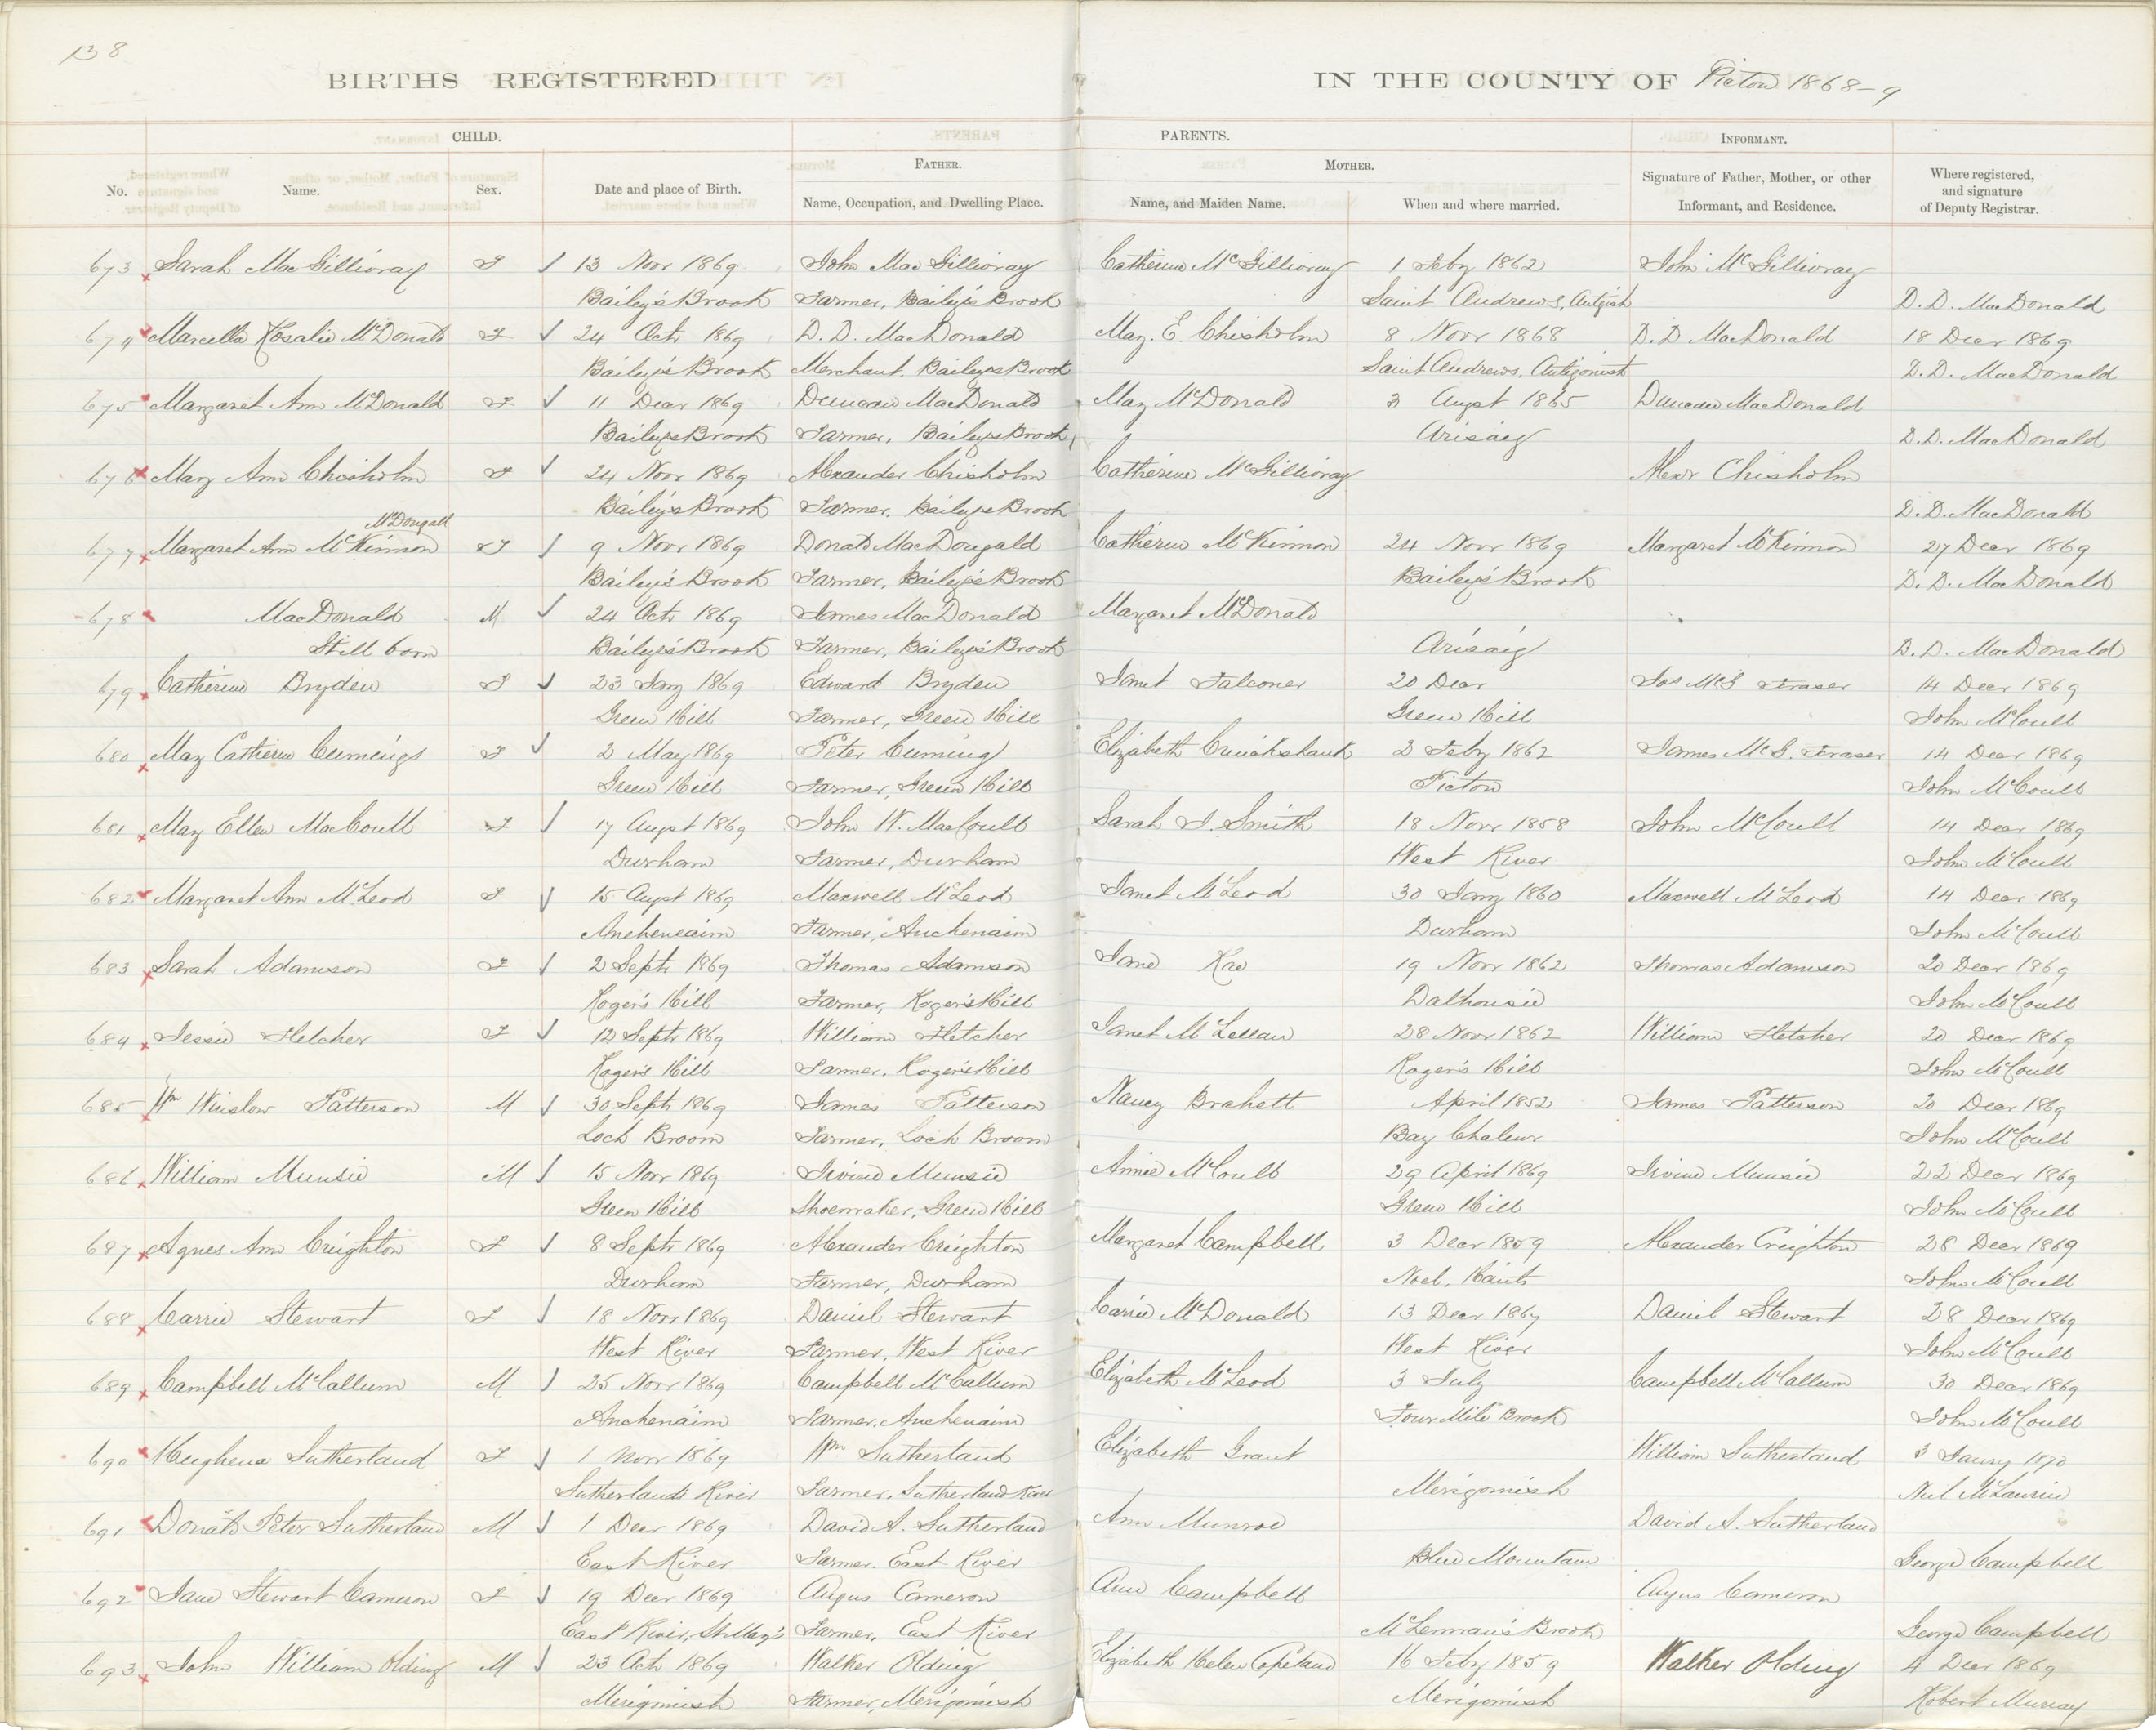 138
BIRTHS REGISTERED IN THE COUNTY OF Pictou 1868-9
CHILD. PARENTS. INFORMANT.
FATHER. MOTHER.
No. Name. Sex. Date and place of Birth. Name, Occupation, and Dwelling Place. Name, and Maiden Name. When and where married. Signature of Father, Mother, or other Informant, and Residence. Where registered, and signature of Deputy Registrar.
673 Sarah MacGillivray F 13 Novr 1869 John MacGillivray Catherine McGillivray 1 Feby 1862 John McGillivray
Bailey's Brook Farmer, Bailey's Brook Saint Andrews, Antgish D. D. MacDonald
674 Marcella Rosalie McDonald F 24 Octr 1869 D. D. MacDonald Mary. E. Chisholm 8 Novr 1868 D. D MacDonald 18 Decr 1869
Bailey's Brook Merchant, Bailey's Brook Saint Andrews, Antigonish D. D. MacDonald
675 Margaret Ann McDonald F 11 Decr 1869 Duncan MacDonald Mary McDonald 3 Augst 1865 Duncan MacDonald
Bailey's Brook Farmer, Bailey's Brook Arisaig D. D. MacDonald
676 Mary Ann Chisholm F 24 Novr 1869 Alexander Chisholm Catherine McGillivray Alexr Chisholm
Bailey's Brook Farmer, Bailey's Brook D. D. MacDonald
McDougall
677 Margaret Ann McKinnon F 9 Novr 1869 Donald MacDougald Catherine McKinnon 24 Novr 1869 Margaret McKinnon 27 Decr 1869
Bailey's Brook Farmer, Bailey's Brook Bailey's Brook D. D. MacDonald
678 MacDonald M 24 Octr 1869 James MacDonald Margaret McDonald
Still born Bailey's Brook Farmer, Bailey's Brook Arisaig D. D. MacDonald
679 Catherine Bryden F 23 Jany 1869 Edward Bryden Janet Falconer 20 Decr Jas McG Fraser 14 Decr 1869
Green Hill Farmer, Green Hill Green Hill John McCoull
680 Mary Catherine Cumings F 2 May 1869 Peter Cuming Elizabeth Cruickshank 2 Feby 1862 James McG. Fraser 14 Decr 1869
Green Hill Farmer, Green Hill Pictou John McCoull
681 Mary Ellen MacCoull F 17 Augst 1869 John W. MacCoull Sarah J. Smith 18 Novr 1858 John McCoull 14 Decr 1869
Durham Farmer, Durham West River John McCoull
682 Margaret Ann McLeod F 15 Augst 1869 Maxwell McLeod Janet McLeod 30 Jany 1860 Maxwell McLeod 14 Decr 1869
Auchencairn Farmer, Auchenairn Durham John McCoull
683 Sarah Adamson F 2 Septr 1869 Thomas Adamson Jane Rae 19 Novr 1862 Thomas Adamson 20 Decr 1869
Roger's Hill Farmer, Roger's Hill Dalhousie John McCoull
684 Jessie Fletcher F 12 Septr 1869 William Fletcher Janet McLellan 28 Novr 1862 William Fletcher 20 Decr 1869
Roger's Hill Farmer, Roger's Hill Roger's Hill John McCoull
685 Wm Winslow Patterson M 30 Septr 1869 James Patterson Nancy Brakett April 1852 James Patterson 20 Decr 1869
Loch Broom Farmer, Loch Broom Bay Chaleur John McCoull
686 William Munsie M 15 Novr 1869 Irvine Munsie Annie McCoull 29 April 1869 Irvine Munsie 22 Decr 1869
Green Hill Shoemaker, Green Hill Green Hill John McCoull
687 Agnes Ann Creighton F 8 Septr 1869 Alexander Creighton Margaret Campbell 3 Decr 1859 Alexander Creighton 28 Decr 1869
Durham Farmer, Durham Noel, Hants John McCoull
688 Carrie Stewart F 18 Novr 1869 Daniel Stewart Carrie McDonald 13 Decr 1867 Daniel Stewart 28 Decr 1869
West River Farmer, West River West River John McCoull
689 Campbell McCallum M 25 Novr 1869 Campbell McCallum Elizabeth McLeod 3 July Campbell McCallum 30 Decr 1869
Auchenairn Farmer, Auchenairn Four Mile Brook John McCoull
690 Hughena Sutherland F 1 Novr 1869 Wm Sutherland Elizabeth Grant William Sutherland 3 Jany 1870
Sutherland's River Farmer, Sutherland River Merigomish Neil McLaurin
691 Donald Peter Sutherland M 1 Decr 1869 David A. Sutherland Ann Munroe David A. Sutherland
East River Farmer. East River Blue Mountain George Campbell
692 Jane Stewart Cameron F 19 Decr 1869 Angus Cameron Ann Campbell Angus Cameron
East River, St. Mary's Farmer, East River McLennan's Brook George Campbell
693 John William Olding M 23 Octr 1869 Walker Olding Elizabeth Helen Copeland 16 Feby 1859 Walker Olding 4 Decr 1869
Merigomish Farmer, Merigomish Merigomish Robert Murray